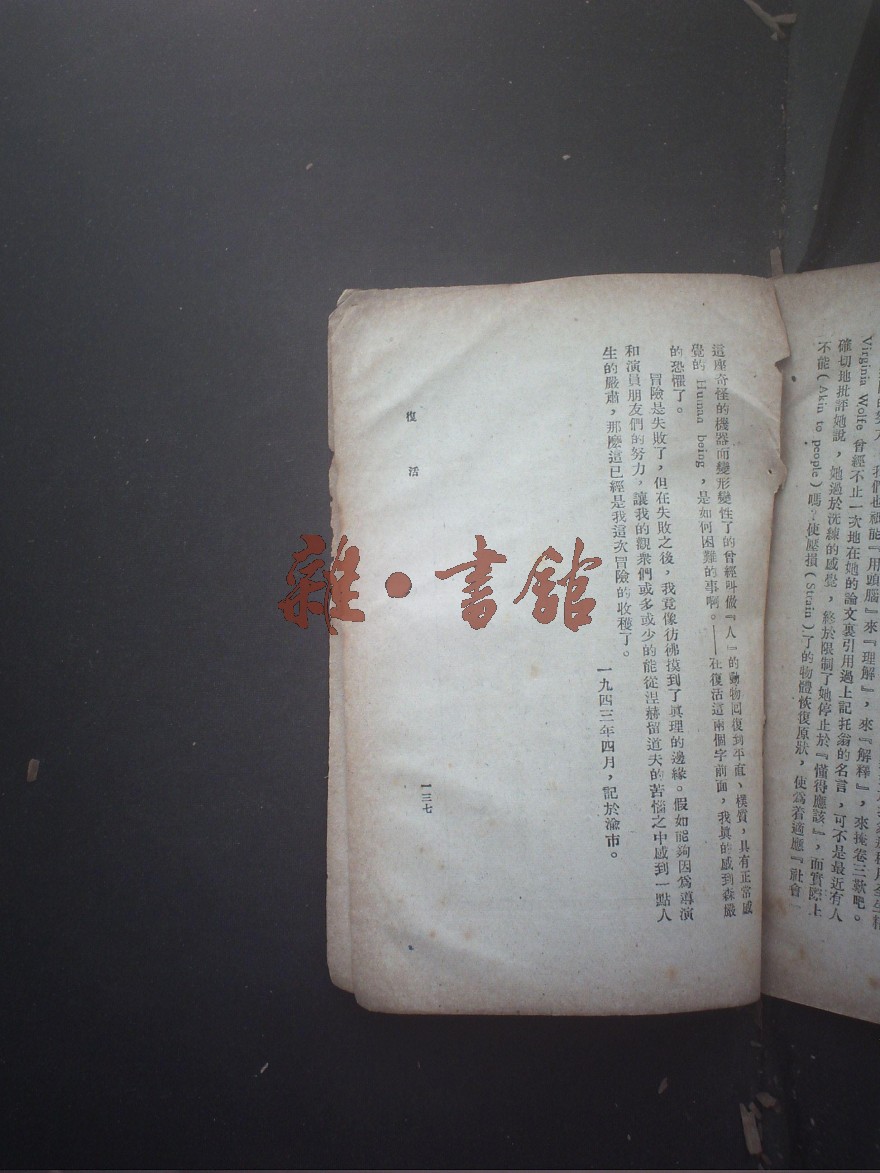 Virginia Wolfe 曾經不止一次地在她的論文裏引用過上記托翁的名言，可不是最近有人
確切地批評她說，她過於洗練的感覺，終於限制了她停止於『懂得應該』，而實際上
不能（Akin to people）嗎？使壓損（Strain）了的物體恢復原狀，使爲着適應『社會』
這座奇怪的機器而變形變性了的曾經叫做『人』的動物囘復到平直、樸質，具有正常感
覺的 Human being，是如何困難的事啊。——在復活這兩個字前面，我眞的感到森嚴
的恐懼了。
冒險是失敗了，但在失敗之後，我竟像彷彿摸到了眞理的邊緣。假如能夠因爲導演
和演員朋友們的努力，讓我的觀衆們或多或少的能從涅赫留道夫的苦惱之中感到一點人
生的嚴肅，那麼這已經是我這次冒險的收穫了。
一九四三年四月，記於渝市。
復活
一三七
雜·書館